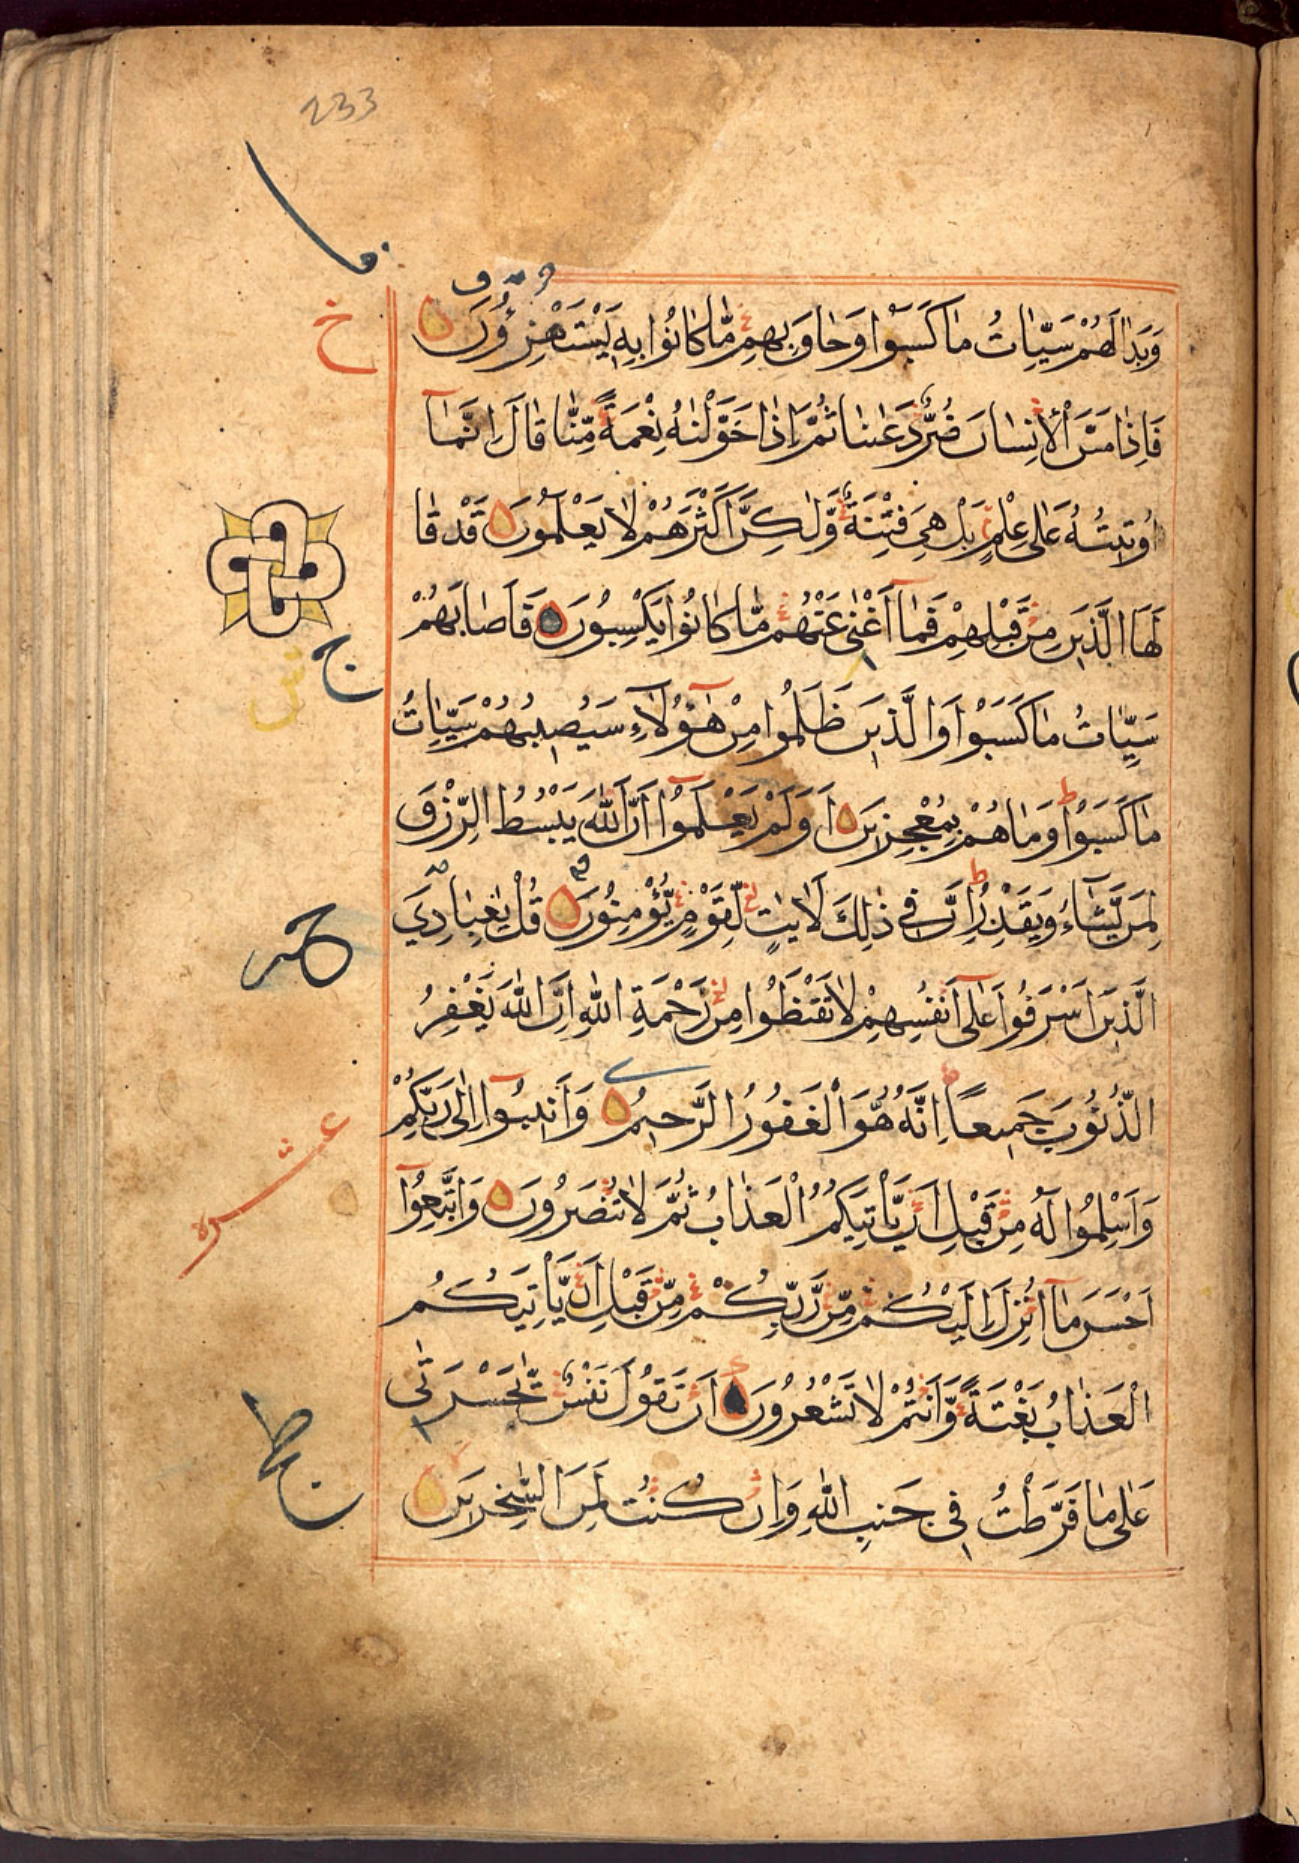 233
وَبَدَا لَهُمْ سَيِّاٰتُ مَا كَسَبُوا وَحَاقَ بِهِمْ مَّا كَانُوا بِهٖ يَسْتَهْزِؤُنَ
فَاِذَا مَسَّ الْاِنْسَانَ ضُرٌّ دَعَانَا ثُمَّ اِذَا خَوَّلْنٰهُ نِعْمَةً مِّنَّا قَالَ اِنَّمَآ
اُوتِيتُهُ عَلٰى عِلْمٍ بَلْ هِىَ فِتْنَةٌ وَّلٰكِنَّ اَكْثَرَهُمْ لَا يَعْلَمُونَ قَدْ قَا
لَهَا الَّذِينَ مِنْ قَبْلِهِمْ فَمَآ اَغْنٰى عَنْهُمْ مَّا كَانُوا يَكْسِبُونَ فَاَصَابَهُمْ
سَيِّاٰتُ مَا كَسَبُوا وَالَّذِينَ ظَلَمُوا مِنْ هٰٓؤُلَآءِ سَيُصِيبُهُمْ سَيِّاٰتُ
مَا كَسَبُوا وَمَا هُمْ بِمُعْجِزِينَ اَوَلَمْ يَعْلَمُوٓا اَنَّ اللّٰهَ يَبْسُطُ الرِّزْقَ
لِمَنْ يَّشَآءُ وَيَقْدِرُ اِنَّ فِى ذٰلِكَ لَاٰيٰتٍ لِّقَوْمٍ يُّؤْمِنُونَ قُلْ يٰعِبَادِىَ
الَّذِينَ اَسْرَفُوا عَلٰٓى اَنْفُسِهِمْ لَا تَقْنَطُوا مِنْ رَّحْمَةِ اللّٰهِ اِنَّ اللّٰهَ يَغْفِرُ
الذُّنُوبَ جَمِيعًا اِنَّهُ هُوَ الْغَفُورُ الرَّحِيمُ وَاَنِيبُوٓا اِلٰى رَبِّكُمْ
وَاَسْلِمُوا لَهُ مِنْ قَبْلِ اَنْ يَّاْتِيَكُمُ الْعَذَابُ ثُمَّ لَا تُنْصَرُونَ وَاتَّبِعُوٓا
اَحْسَنَ مَآ اُنْزِلَ اِلَيْكُمْ مِّنْ رَّبِّكُمْ مِّنْ قَبْلِ اَنْ يَّاْتِيَكُمُ
الْعَذَابُ بَغْتَةً وَّاَنْتُمْ لَا تَشْعُرُونَ اَنْ تَقُولَ نَفْسٌ يّٰحَسْرَتٰى
عَلٰى مَا فَرَّطْتُ فِى جَنْبِ اللّٰهِ وَاِنْ كُنْتُ لَمِنَ السّٰخِرِينَ
خ
عشره